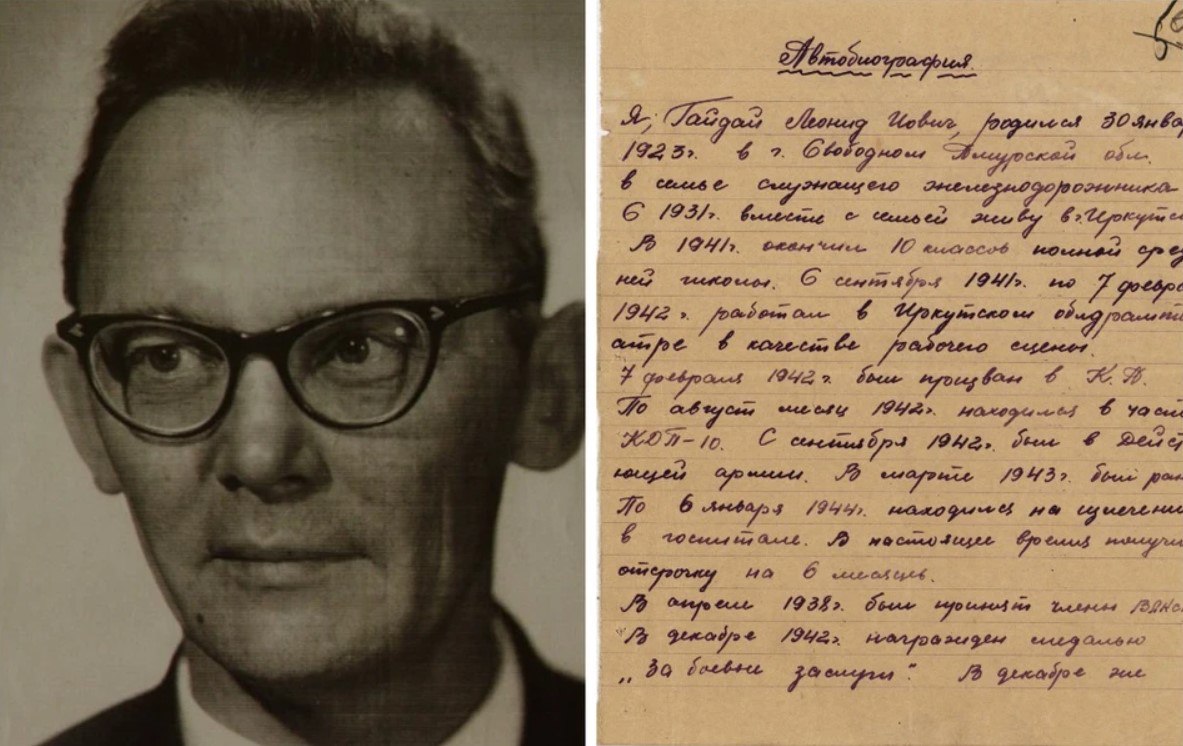 Автобиография.
Я, Гайдай Леонид Иович, родился 30 янва
1923г. в г. Свободном Амурской обл.
в семье служащего железнодорожника
С 1931г. вместе с семьей живу в г. Иркутс
В 1941г. окончил 10 классов полной сред
ней школы. С сентября 1941г. по 7 февра
1942г. работал в Иркутском облдрамт
атре в качестве рабочего сцены.
7 февраля 1942г. был призван в К.А.
По август месяц 1942г. находился в част
С сентября 1942г. был в Дейст
ющей армии. В марте 1943г. был ран
По 6 января 1944г. находился на излечени
в госпитале. В настоящее время получи
отсрочку на 6 месяцев.
В апреле 1938г. был принят члены
В декабре 1942г. награжден медалью
„За боевые заслуги“. В декабре же